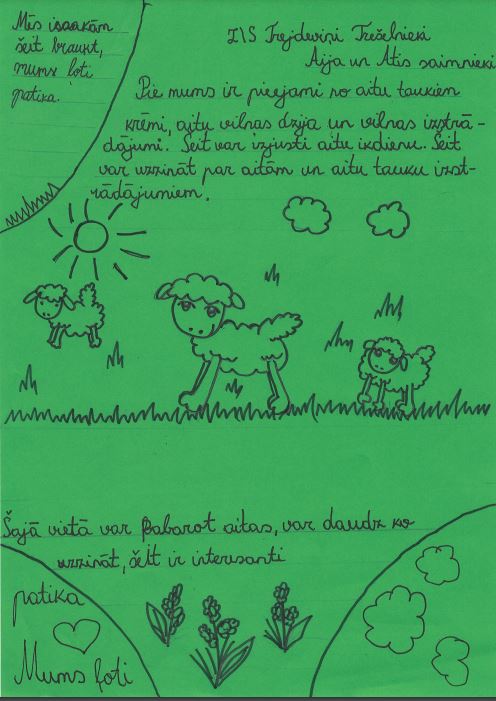 Mēs isaakām
šeit braukt,
mums ļoti
patika.
Z\S Trejdeviņi Trešelnieki
Aija un Atis saimnieki
Pie mums ir pieejami no aitu taukiem
krēmi, aitu vilnas dzija un vilnas izstrā-
dājumi. Šeit var izjusti aitu ikdienu. Šeit
var uzzināt par aitām un aitu tauku izst-
rādājumiem.
Šajā vietā var Pabarot aitas, var daudz ko
uzzināt, šeit ir interesanti
patika
Mums ļoti